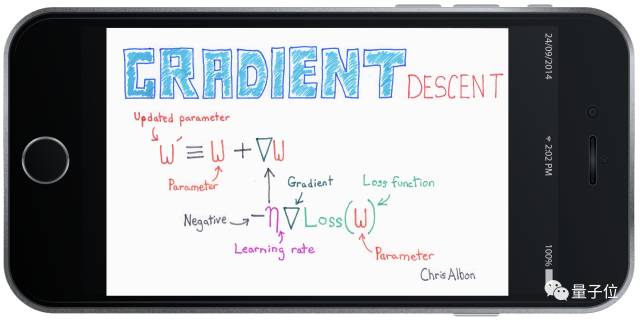 GRADIENT DESCENT
Updated parameter
w′ ≡ w + ∇w
Parameter
Gradient
Loss function
Negative
−η∇Loss(w)
Learning rate
Parameter
Chris Albon
24/09/2014
2:02 PM
100%
量子位